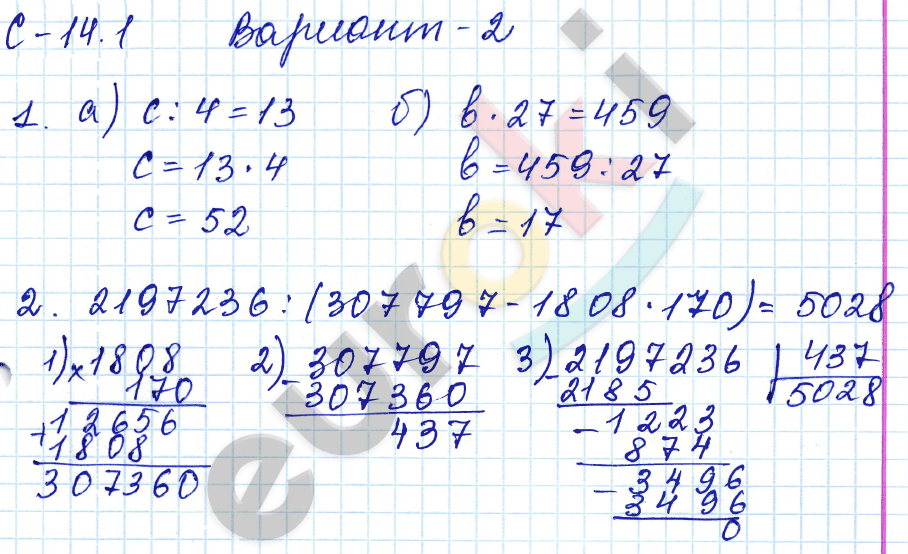 С-14.1 Вариант-2
1. а) с:4=13 б) в·27=459
с=13·4 в=459:27
с=52 в=17
2. 2197236:(307797-1808·170)=5028
1) ×1808 2) -307797 3) -2197236 | 437
170 307360 2185 5028
+12656 437 -1223
1808 874
307360 -3496
3496
0
euroki